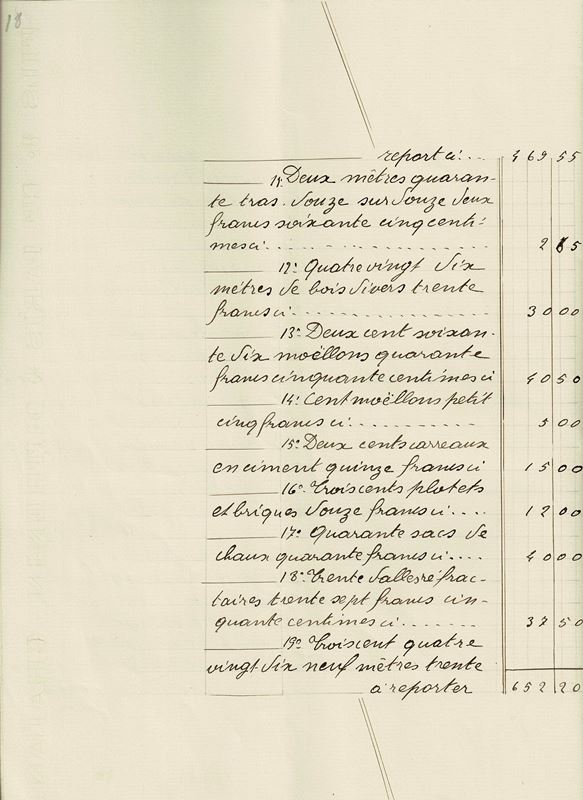 18
report ci... 469 55
11° Deux mètres quaran-
te tras. douze sur douze deux
francs soixante cinq centi-
mes ci. 2 65
12° Quatre vingt dix
mètres de bois divers trente
francs ci. 30 00
13° Deux cent soixan-
te dix moëllons quarante
francs cinquante centimes ci 40 50
14° Cent moëllons petit
cinq francs ci. 5 00
15° Deux cents carreaux
en ciment quinze francs ci 15 00
16° Trois cents plotets
et briques douze francs ci.... 12 00
17° Quarante sacs de
chaux quarante francs ci.... 40 00
18° Trente dalles réfrac-
taires trente sept francs cin-
quante centimes ci. 37 50
19° Trois cent quatre
vingt dix neuf mètres trente
à reporter 652 20